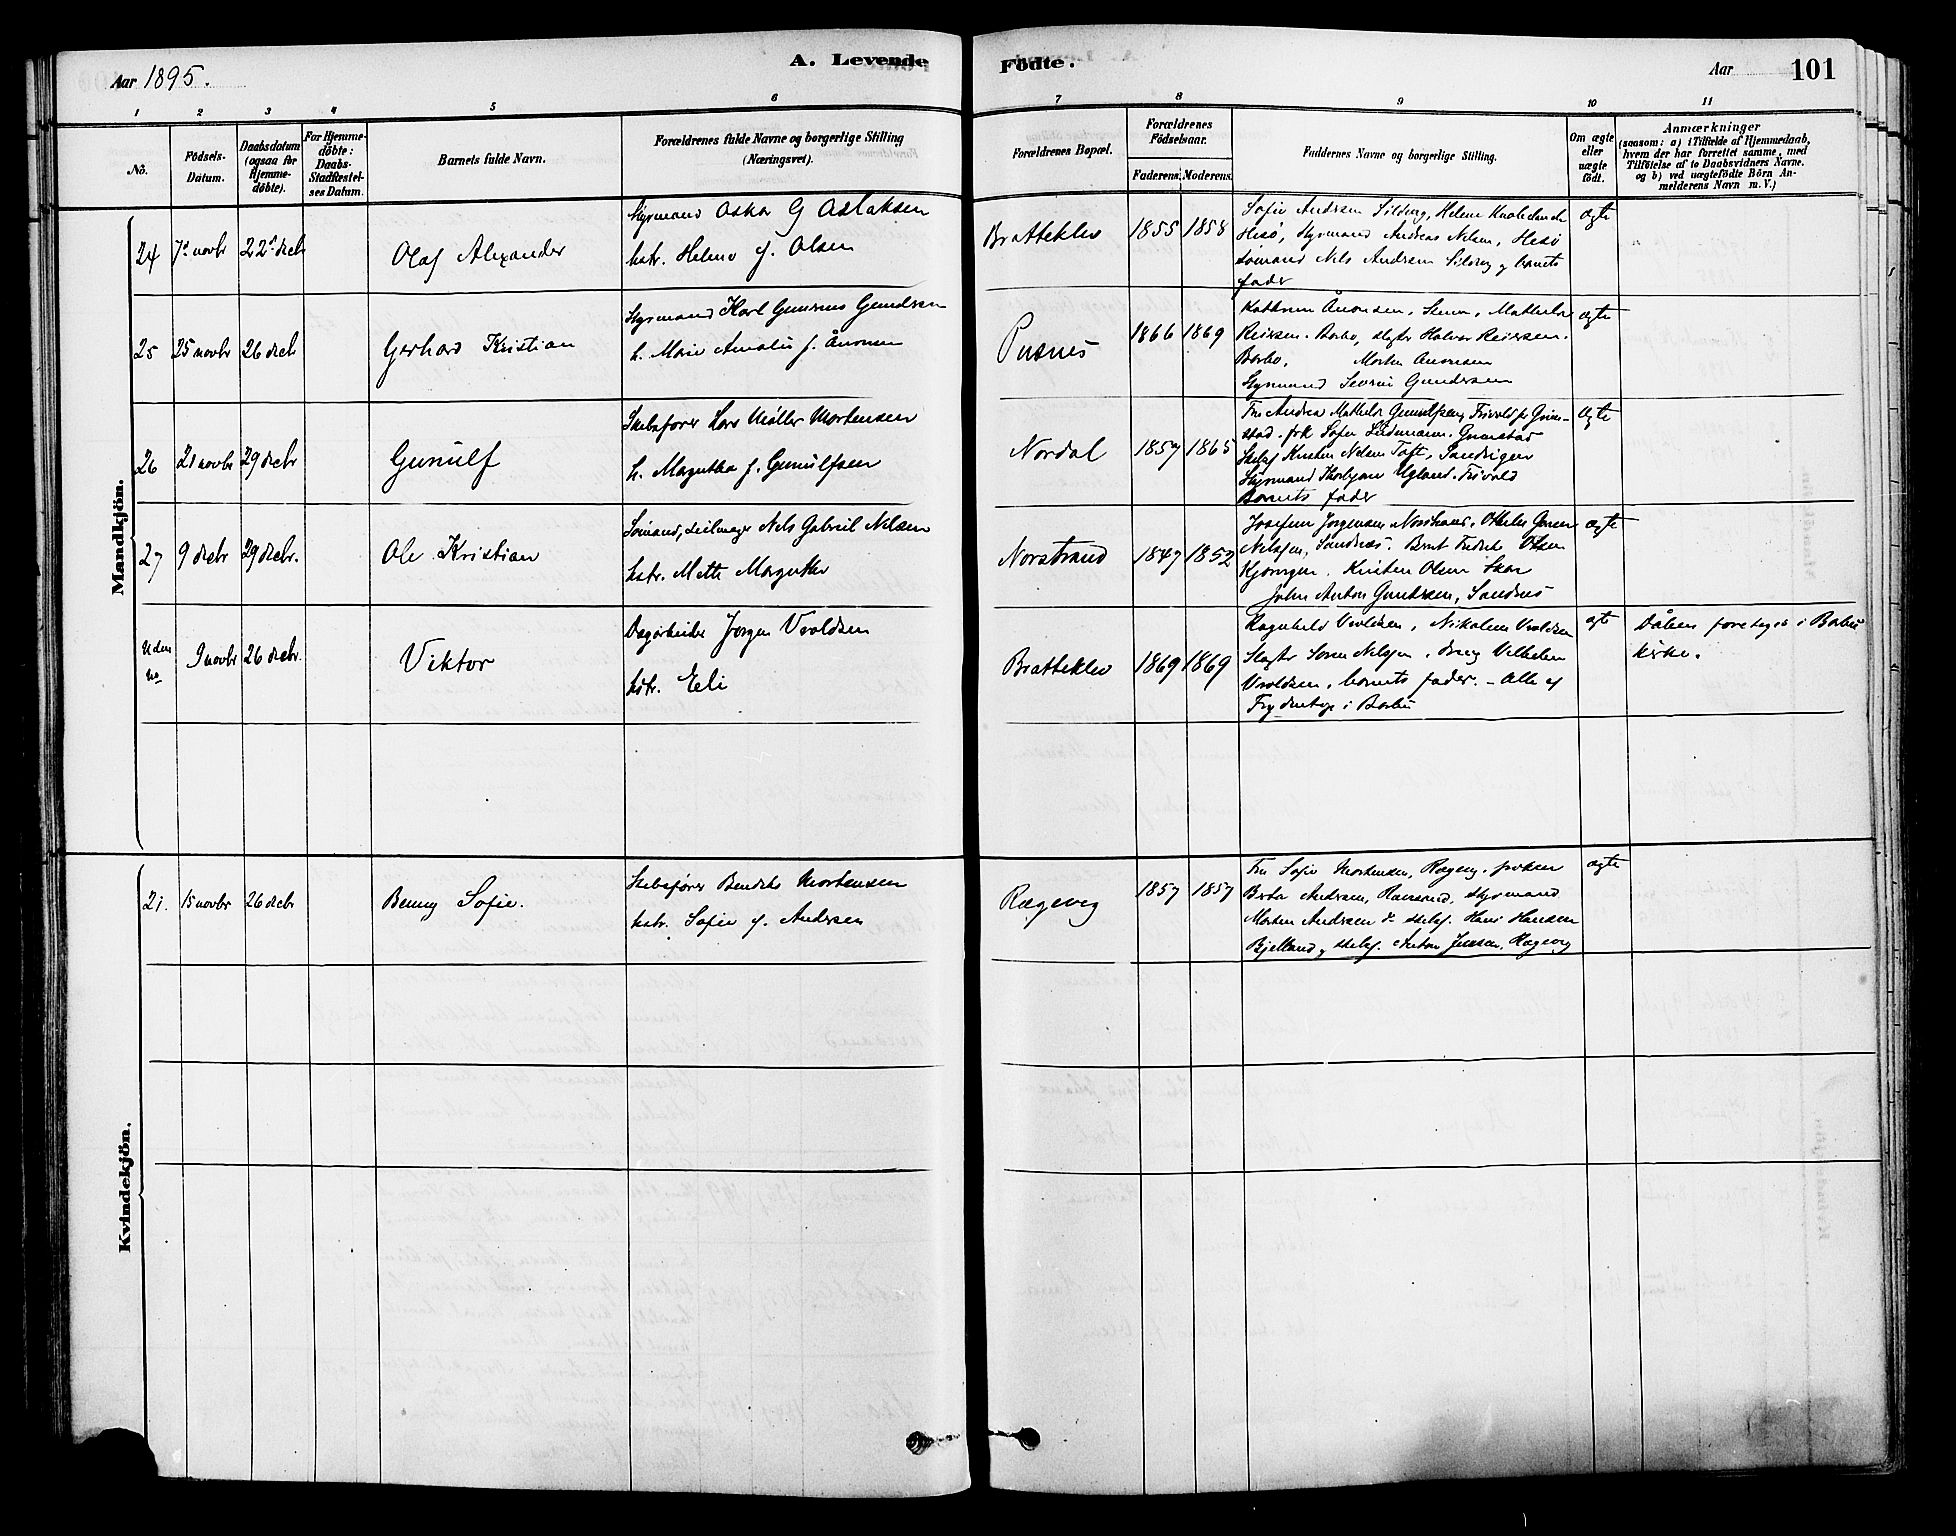 Aar 1895.
A. Levende
Fødte.
Aar
101
1 2 3 4 5 6
7 8 9 10 11
No.
Fødsels-
Datum.
Daabsdatum
(ogsaa for
Hjemme-
døbte).
For Hjemme-
døbte:
Daabs-
Stadfæstel-
ses Datum.
Barnets fulde Navn.
Forældrenes fulde Navne og borgerlige Stilling
(Næringsvei).
Forældrenes Bopæl.
Forældrenes
Fødselsaar.
Faderens. Moderens.
Faddernes Navne og borgerlige Stilling.
Om ægte
eller
uægte
født.
Anmærkninger
(saasom: a) i Tilfælde af Hjemmedaab,
hvem der har forrettet samme, med
Tilføielse af to Daabsvidners Navne.
og b) ved uægtefødte Børn An-
melderens Navn m. V.)
Mandkjön.
24
7d novbr
22d decb
Olaf Alexander
Styrmand Oskar G Aslaksen
hstr. Helene f. Olsen
Bratteklev
1855 1858
Sofie Andersen Sildvig, Helene
Hisø, Styrmand Andreas Nilsen, Hisø
sømand Nils Andersen Sildvig og barnets
fader
ægte
25
25 novbr
26 decb
Gerhard Kristian
Styrmand Karl Gunerius Gundersen
h. Marie Amalie f. Ånonsen
Pusnes
1866 1869
Ånonsen, Mathilde
Reiersen. Barbo, Halvor Reiersen.
Barbo, Morten Anonsen
Styrmand Severin Gundersen
ægte
26
21 novbr
29 decbr
Gunulf
Skibsfører Lars Møller Mortensen
h. Magrethe f. Gunulfsen
Nordal
1857 1865
Fru Andrea Mathilde Gunulfsen, Frivold pr Grim-
stad. frk Sofie Lindemann. Grimstad
Skibsf Kristen Nelsen Toft, Sandvigen
Styrmand Ugland. Frivold
Barnets fader
ægte
27
9 decbr
29 decbr.
Ole Kristian
Sømand, seilmager Nels Gabriel Nilsen
hstr. Mette Magrethe
Norstrand
1847 1852
Josefine Jorgensen Norstrand, Othelie
Nilsen, Sandnæs. Bernt Fredrik Olsen
Kristen Olsen Skare
John Anton Gundersen, Sandnes
ægte
Uden
No
9 novbr
26 decbr.
Viktor
Dagarbeider Jørgen Vroldsen
hstr. Eli
Bratteklev
1869 1869
Ragnhild Vroldsen, Nikoline Vroldsen
Søren Nilsen, Vilhelm
Vroldsen, barnets fader. – Alle af
i Barbu
ægte
Dåben foretaget i Barbu
kirke.
Kvindekjön.
21.
15 novbr
26 decbr
Benny Sofie.
Skibsfører Bendik Mortensen
hstr. Sofie f. Andersen
Rægevig
1857 1857
Fru Sofie Mortensen, Rægevig. frøken
Berta Andersen, Styrmand
Morten Andersen Skibsf. Hans Hansen
Bjelland, Skibsf. Anton Jensen, Rægevig
ægte